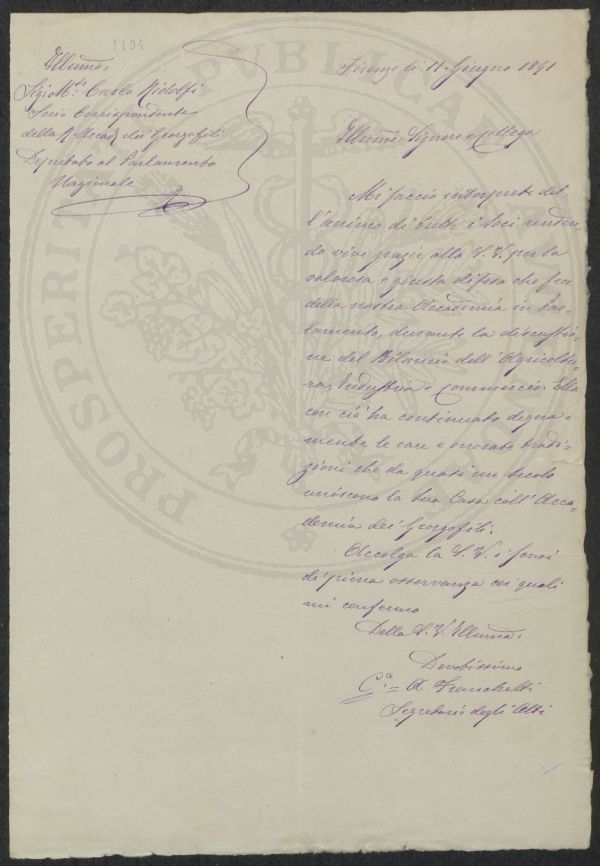 1194
Illumo:
Sig: Mse: Carlo Ridolfi
Socio Corrispondente
della R. Accad. dei Georgofili
Deputato al Parlamento
Nazionale
Firenze li 11. Giugno 1891
Illumo: Signore e Collega
Mi faccio interprete del-
l'animo di tutti i Soci renden-
do vive grazie alla S. V. per la
valorosa e giusta difesa che fece
della nostra Accademia in Par-
lamento, durante la discussio-
ne del Bilancio dell'Agricoltu-
ra, Industria e Commercio. Ella
con ciò ha continuato degna-
mente le care e onorate tradi-
zioni che da quasi un secolo
uniscono la Sua Casa coll'Acca-
demia dei Georgofili.
Accolga la S. V. i sensi
di piena osservanza coi quali
mi confermo
Della S. V. Illuma:
Devotissimo
A. Franchetti
Segretario degli Atti
PROSPERITATI PUBLICAE